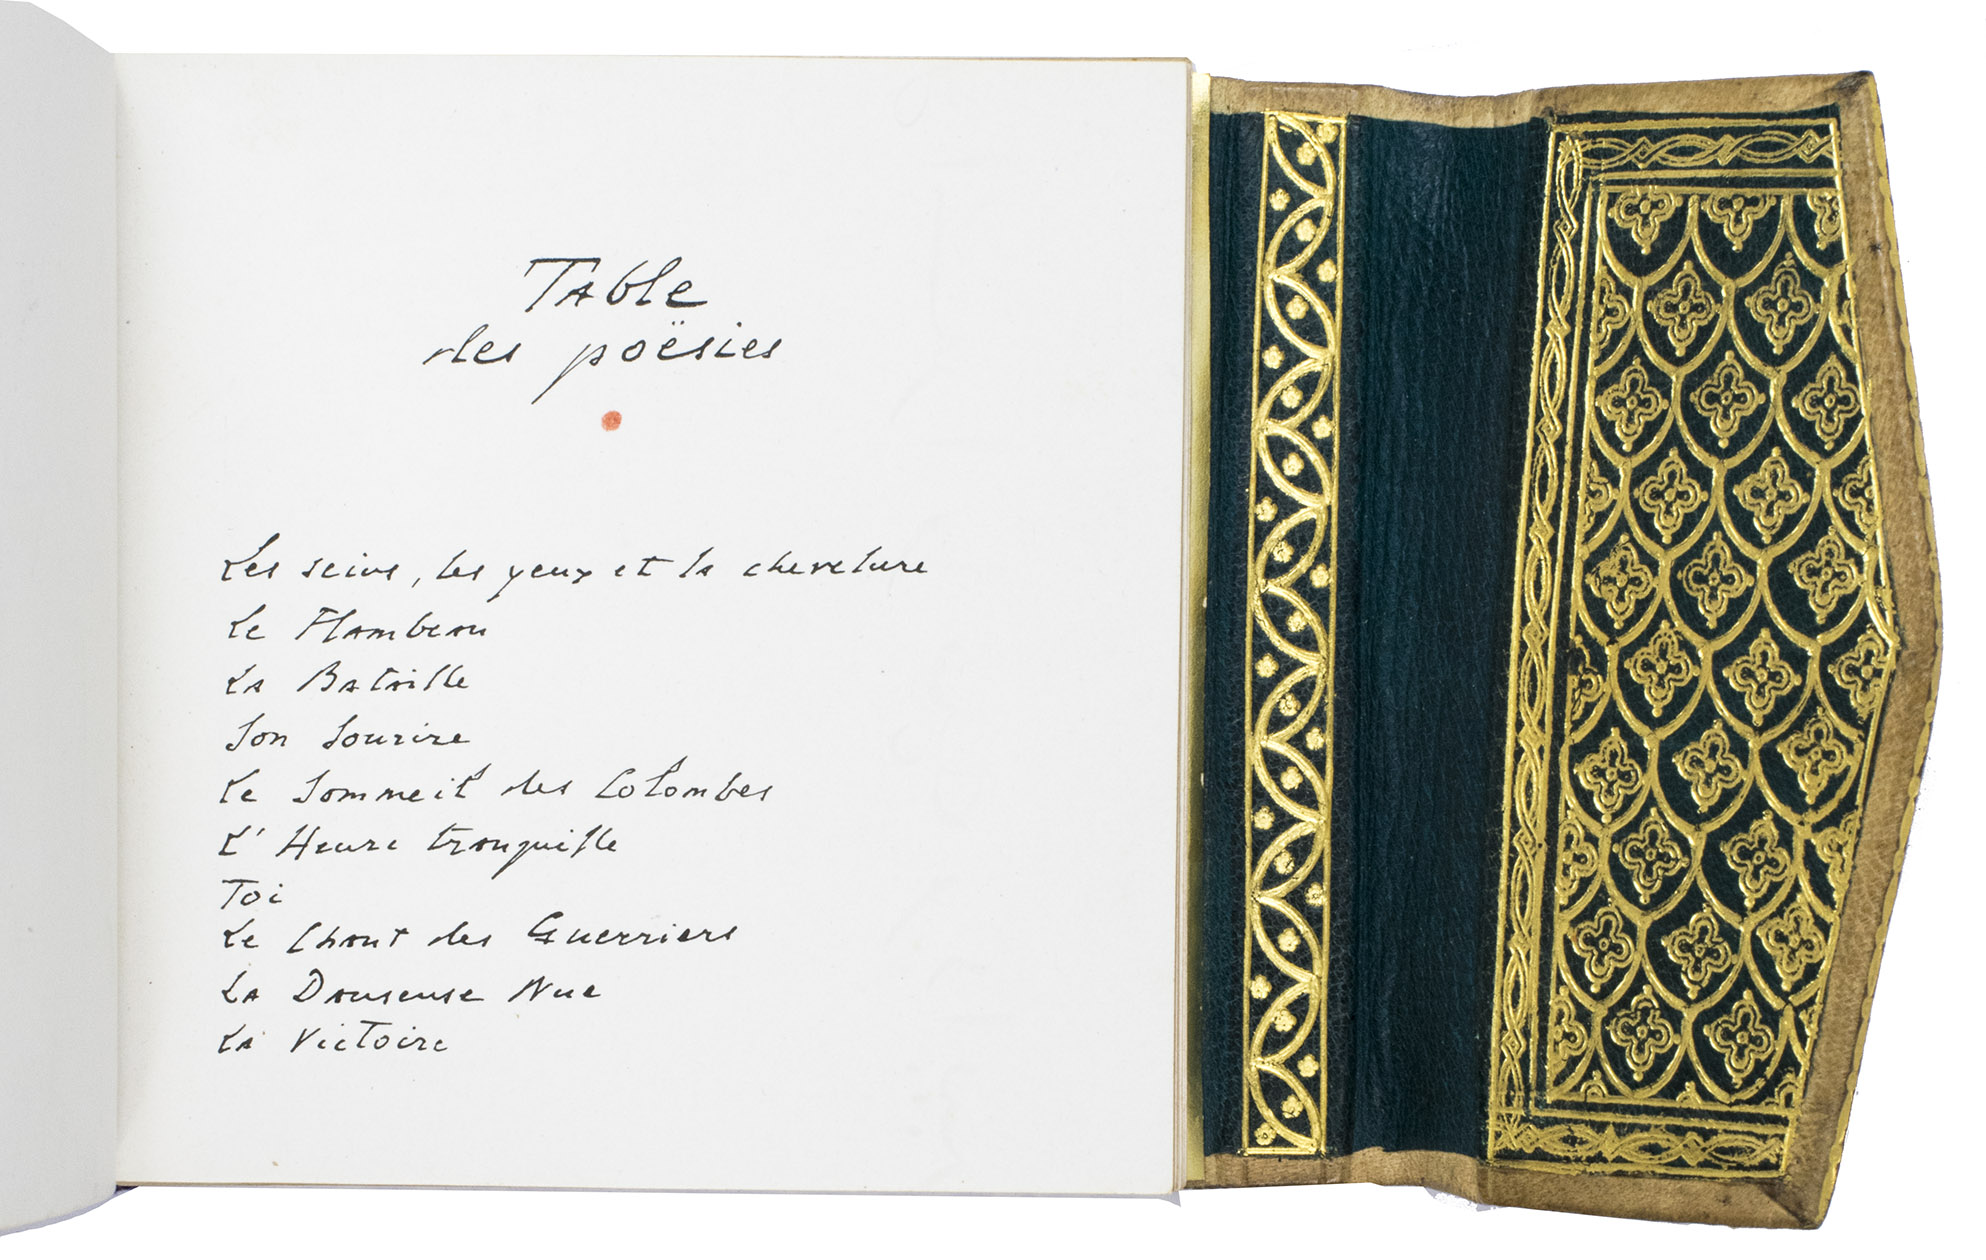 Table
des poësies
Les seins, les yeux et la chevelure
Le Flambeau
La Bataille
Son Sourire
Le Sommeil des Colombes
L'Heure tranquille
Toi
Le Chant des Guerriers
La Danseuse Nue
La Victoire